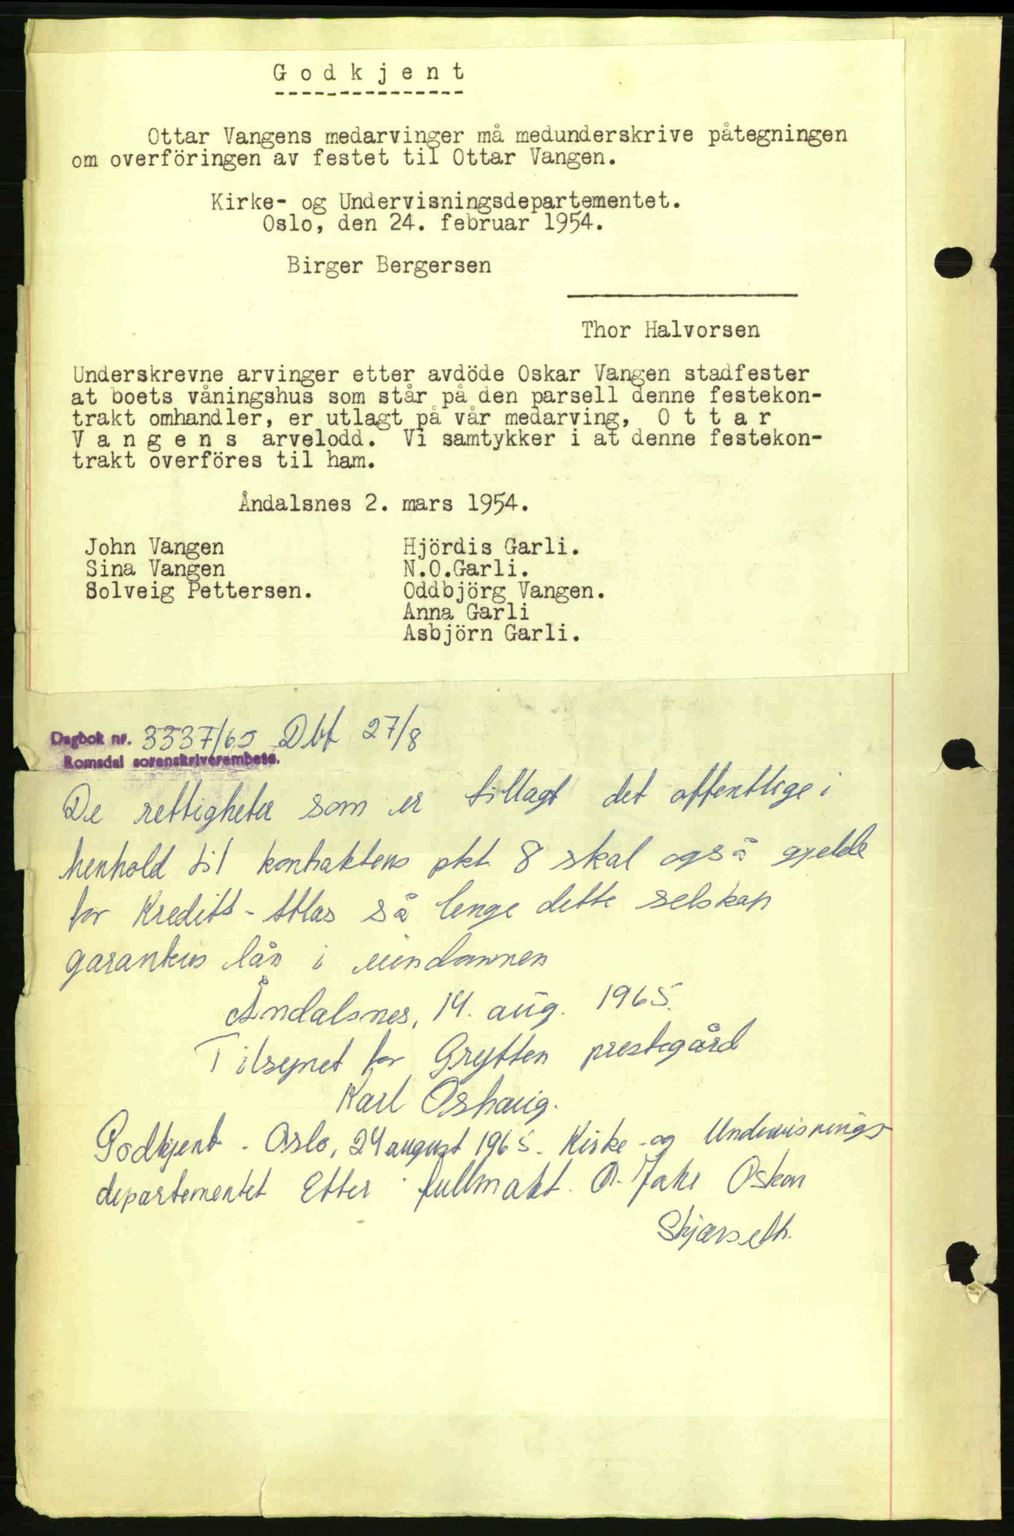 Godkjent
Ottar Vangens medarvinger må medunderskrive påtegningen
om overföringen av festet til Ottar Vangen.
Kirke- og Undervisningsdepartementet.
Oslo, den 24. februar 1954.
Birger Bergersen
Thor Halvorsen
Underskrevne arvinger etter avdöde Oskar Vangen stadfester
at boets våningshus som står på den parsell denne festekon-
trakt omhandler, er utlagt på vår medarving, O t t a r
V a n g e n s arvelodd. Vi samtykker i at denne festekon-
trakt overföres til ham.
Åndalsnes 2. mars 1954.
John Vangen
Sina Vangen
Solveig Pettersen.
Hjördis Garli.
N.O.Garli.
Oddbjörg Vangen.
Anna Garli
Asbjörn Garli.
Dagbok nr. 3337/65 Dbf 27/8
Romsdal sorenskriverembete.
De rettigheter som er tillagt det offentlige i
henhold til kontraktens pkt 8 skal også gjelde
for Kreditt-Atlas så lenge dette selskap
garanterer lån i eiendommen
Åndalsnes, 14. aug. 1965.
Tilsynet for Grytten prestegård
Karl Oshaug.
Godkjent - Oslo, 24 august 1965. Kirke- og Undervisnings
departementet Etter fullmakt. Oskar
Skjærseth.